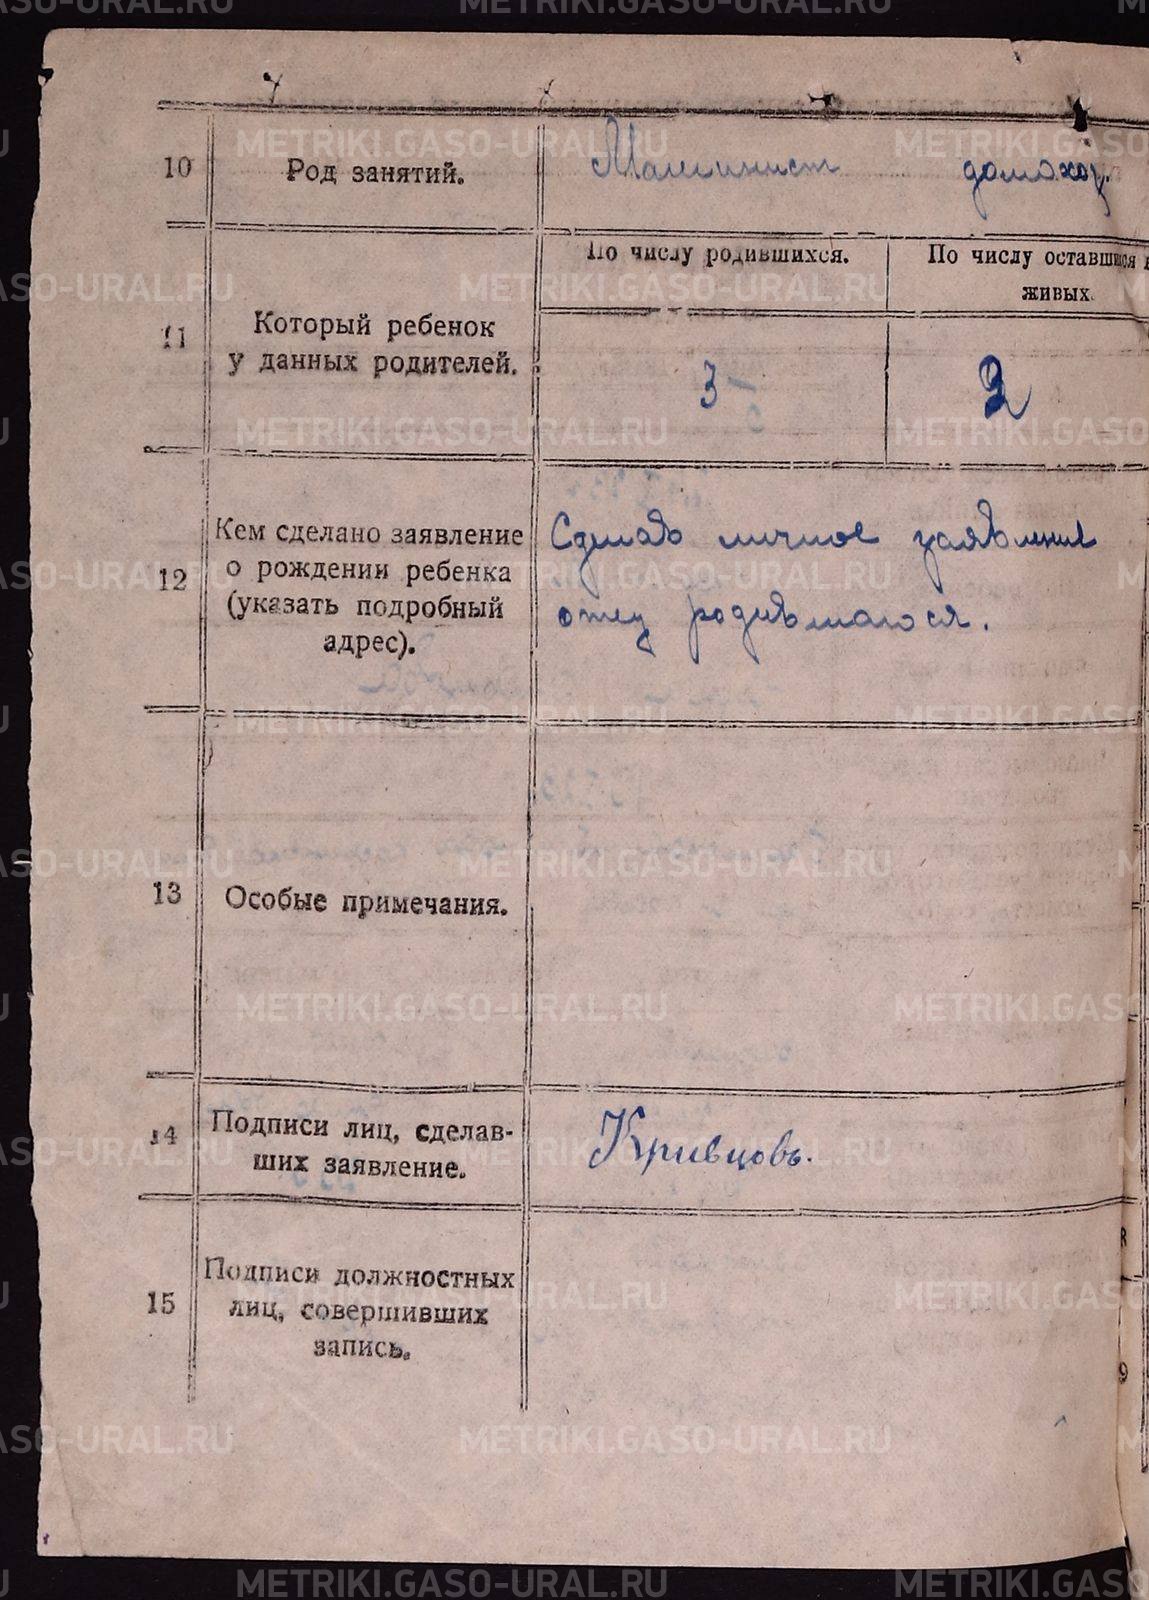 10 Род занятий. Машинист домохоз.
По числу родившихся. По числу оставшихся в
живых.
11 Который ребенок
у данных родителей. 3 2
12 Кем сделано заявление
о рождении ребенка
(указать подробный
адрес).
личное заявление
отец родившагося.
13 Особые примечания.
14 Подписи лиц, сделав-
ших заявление. Кривцовъ.
15 Подписи должностных
лиц, совершивших
запись.
METRIKI.GASO-URAL.RU